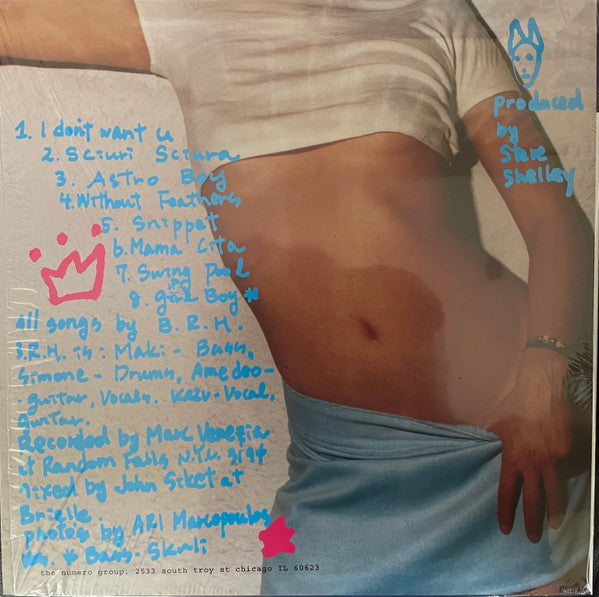 1. I don't want u
2. Sciuri Sciura
3. Astro Boy
4. Without Feathers
5. Snippet
6. Mama Cita
7. Swing Pool
8. girl Boy *
All songs by B.R.H.
B.R.H. is: Maki - Bass,
Simone - Drums, Amedeo -
- guitar, Vocals. Kazu - Vocal,
guitar.
Recorded by Marc Venezia
at Random Falls N.Y.C. 3/94
Mixed by John Siket at
Brielle
photos by ARI Marcopoulos
* Bass - Skuli
produced
by
Steve
Shelley
the numero group, 2533 south troy st chicago IL 60623